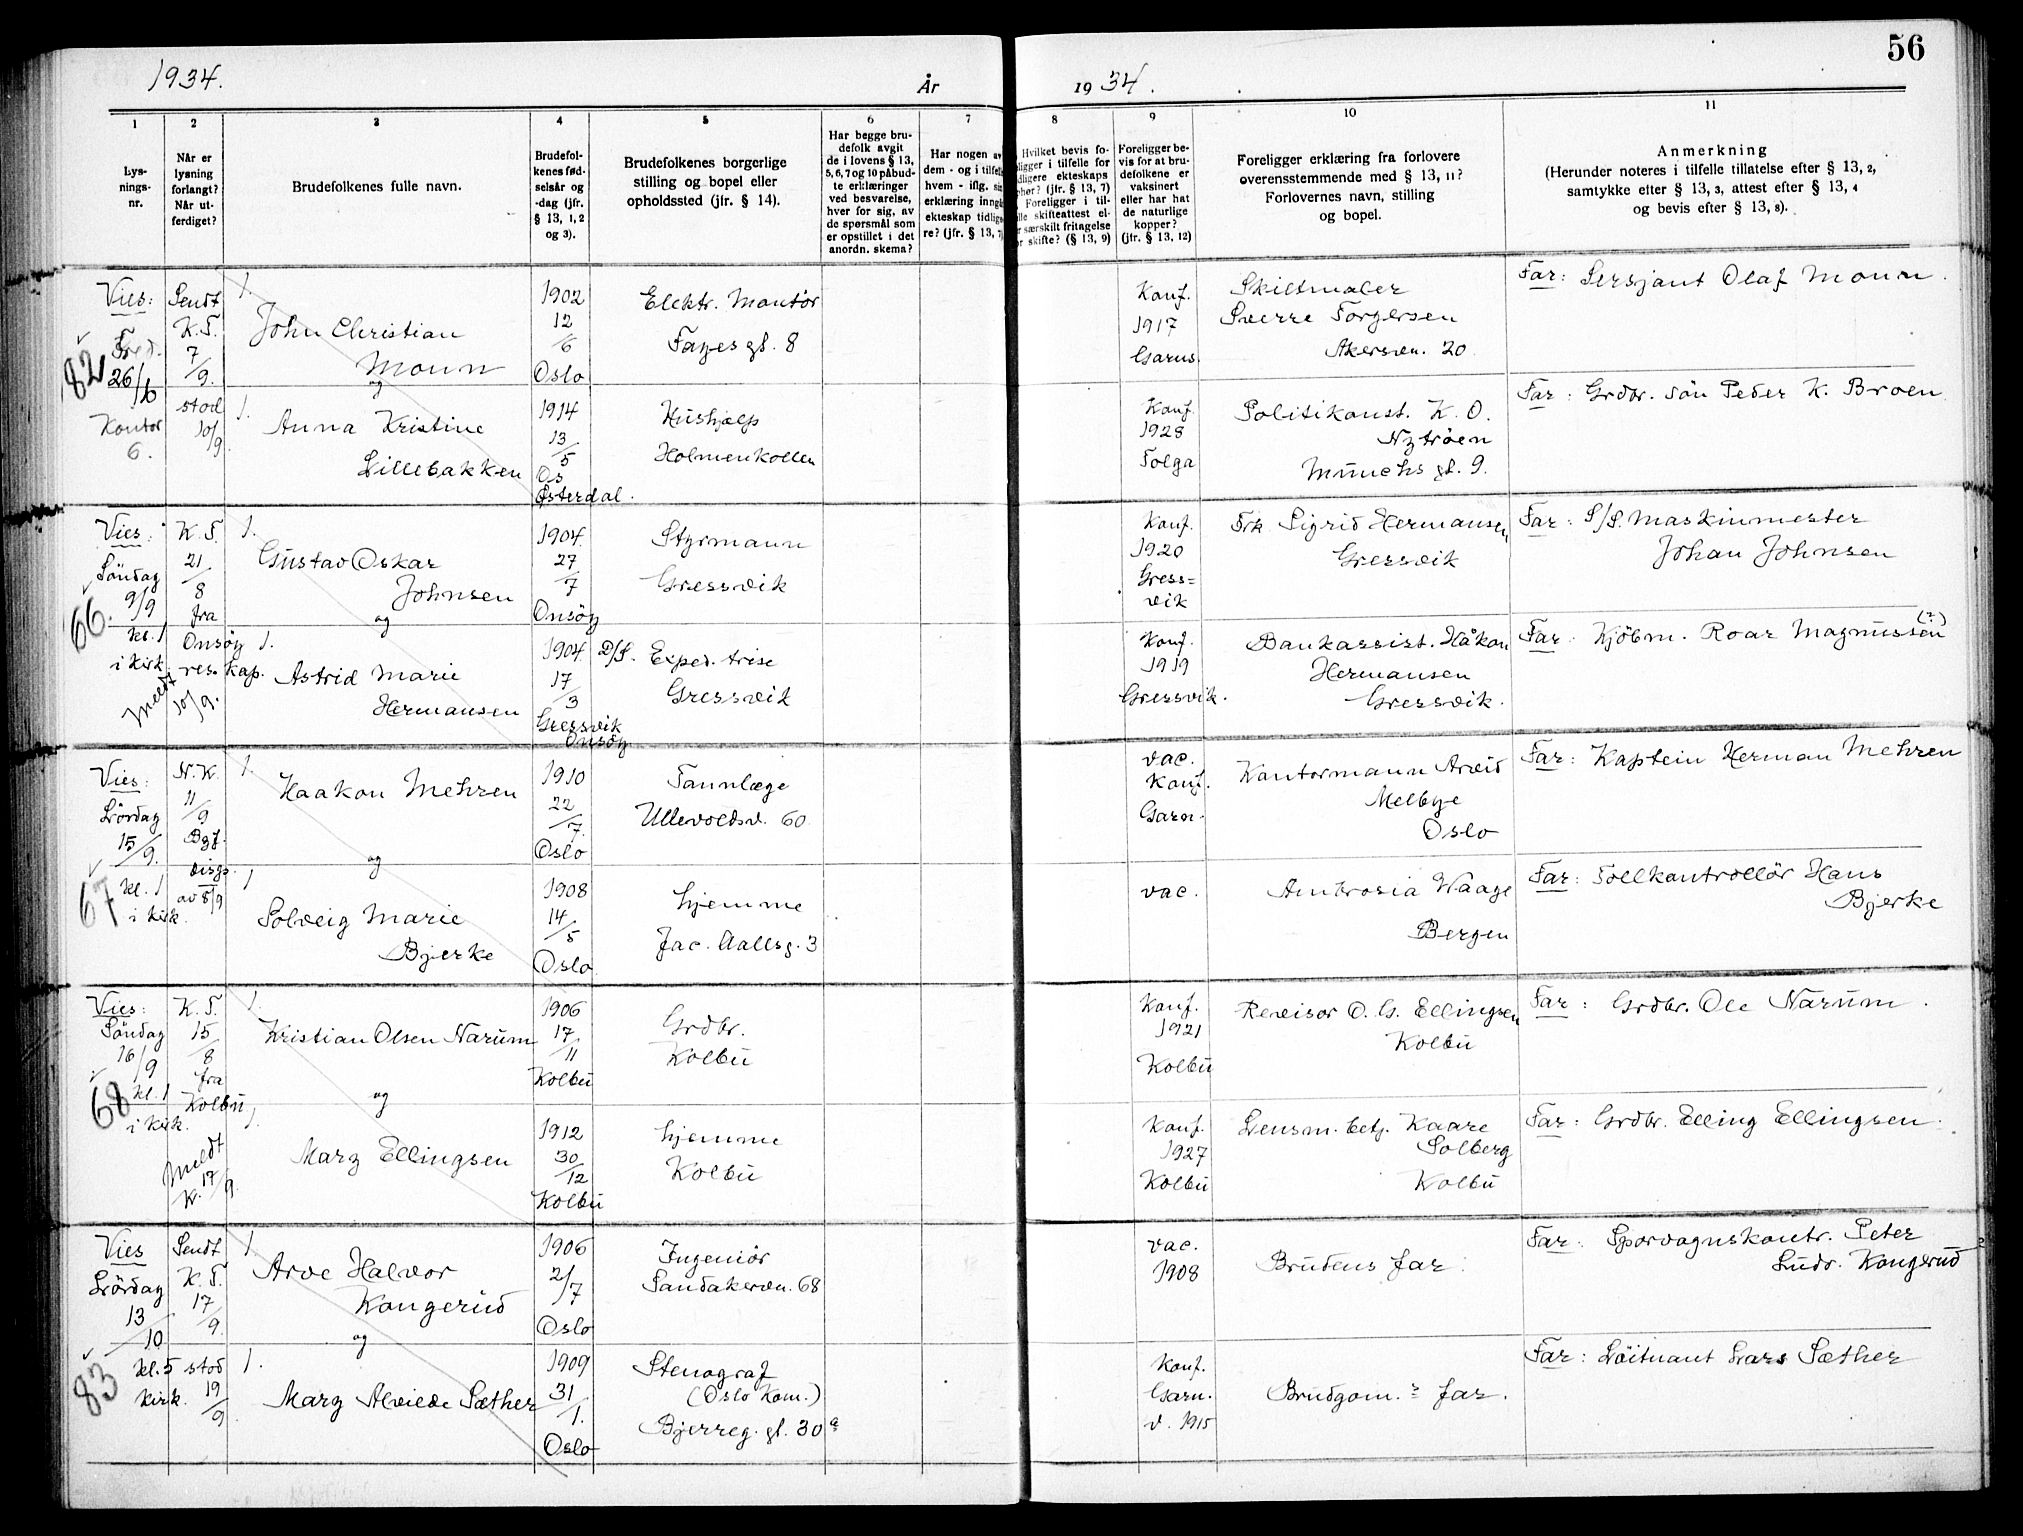 56
1934.
År
19 34.
1
2
3
4
5
6
7
8
9
10
11
Lys-
nings-
nr.
Når er
lysning
forlangt?
Når ut-
ferdiget?
Brudefolkenes fulle navn.
Brudefol-
kenes fød-
selsår og
-dag (jfr.
§ 13, 1, 2
og 3).
Brudefolkenes borgerlige
stilling og bopel eller
opholdssted (jfr. § 14).
Har begge bru-
defolk avgit
de i lovens § 13,
5, 6, 7 og 10 påbud-
te erklæringer
ved besvarelse,
hver for sig, av
de spørsmål som
er opstillet i det
anordn. skema?
Har nogen av
dem - og i tilfelle
hvem - iflg. sin
erklæring inngå
ekteskap tidlige
re? (jfr. § 13, 7)
Hvilket bevis fo-
ligger i tilfelle for
dligere ekteskaps
phør? (jfr. § 13, 7)
Foreligger i til-
lle skifteattest el-
r særskilt fritagelse
or skifte? (§ 13, 9)
Foreligger be-
vis for at bru-
defolkene er
vaksinert
eller har hat
de naturlige
kopper?
(jfr. § 13, 12)
Foreligger erklæring fra forlovere
overensstemmende med § 13, 11?
Forlovernes navn, stilling
og bopel.
Anmerkning
(Herunder noteres i tilfelle tillatelse efter § 13, 2,
samtykke efter § 13, 3, attest efter § 13, 4
og bevis efter § 13, 8).
82
Vies:
Fred.
26/
Kontor
6.
Sendt
K.T.
7/9.
stod
10/9.
1.
John Christian
Moun
og
1902
12/6
Oslo
Elektr. Montör
Fayes gt. 8
Konf.
1917
Garns.
Skiltmaler
Sverre Torgersen
Akersvn. 20
Far: Sersjant Olaf Moun.
1.
Anna Kristine
Lillebakken
1914
13/5
Os
Østerdal.
Hushjelp
Holmenkollen
Konf.
1928
Tolga
Politikonst. K. O.
Nytröen
Munchs gt. 9.
Far: Grdbr. sön Peder K. Broen
66.
Vies:
Söndag
9/9
kl. 1
i kirk.
K.T.
21/8
fra
Onsöy
res. kap.
Meldt 10/9.
1.
Gustav Oskar
Johnsen
og
1904.
27/7
Onsöy
Styrmann
Gressvik
Konf.
1920
Gress=
vik
Frk. Sigrid Hermansen
Gressvik
Far: S/S. Maskinmester
Johan Johnsen
1.
Astrid Marie
Hermansen
1904.
17/3
Gressvik
Onsöy
D/S. Exped. trise
Gressvik
Konf.
1919
Gressvik.
Bankassist. Håkon
Hermansen
Gressvik.
Far: Kjöbm. Roar Magnussen (?)
67
Vies:
Lördag
15/9.
kl. 1
i kirk.
N.K.
11/9
Byf.
disps.
av 8/9
1.
Haakon Mehren
og
1910
22/7.
Oslo
Tannlæge
Ullevoldsv. 60
vac.
Konf.
Garn.
Kontormann Arvid
Melbye
Oslo
Far: Kaptein Herman Mehren
1
Solveig Marie
Bjerke
1908
14/5
Oslo
hjemme
Jac. Aallsg. 3
vac.
Ambrosia Waage
Bergen
Far: Tollkontrollör Hans
Bjerke
68
Vies:
Söndag
16/9
kl. 1
i kirk.
K.T.
15/8
fra
Kolbu
Meldt
K. 17/9.
1.
Kristian Olsen Narum
og
1906
17/11
Kolbu
Grdbr.
Kolbu
Konf.
1921
Kolbu
Revisor O. G. Ellingsen
Kolbu
Far: Grdbr. Ole Narum.
1.
Mary Ellingsen
1912
30/12
Kolbu
hjemme
Kolbu
Konf.
1927
Kolbu
Lensm. betj. Kaare
Solberg
Kolbu
Far: Grdbr. Elling Ellingsen.
83
Vies
Lördag
13/10
kl. 5
kirk.
Sendt
K.T.
17/9.
stod
19/9
1
Arve Halvor
Kongerud
og
1906
2/7
Oslo
Ingeniör
Sandakervn. 68
vac.
1908
Brudens far.
Far: Sporvognskontr. Peter
Ludv. Kongerud
1.
Mary Alvilde Sæther
1909
31/1.
Oslo
Stenograf
(Oslo Kom.)
Bjerreg. gt. 30 a
Konf.
Garn.
v. 1915
Brudgom.s far.
Far: Löitnant Lars Sæther